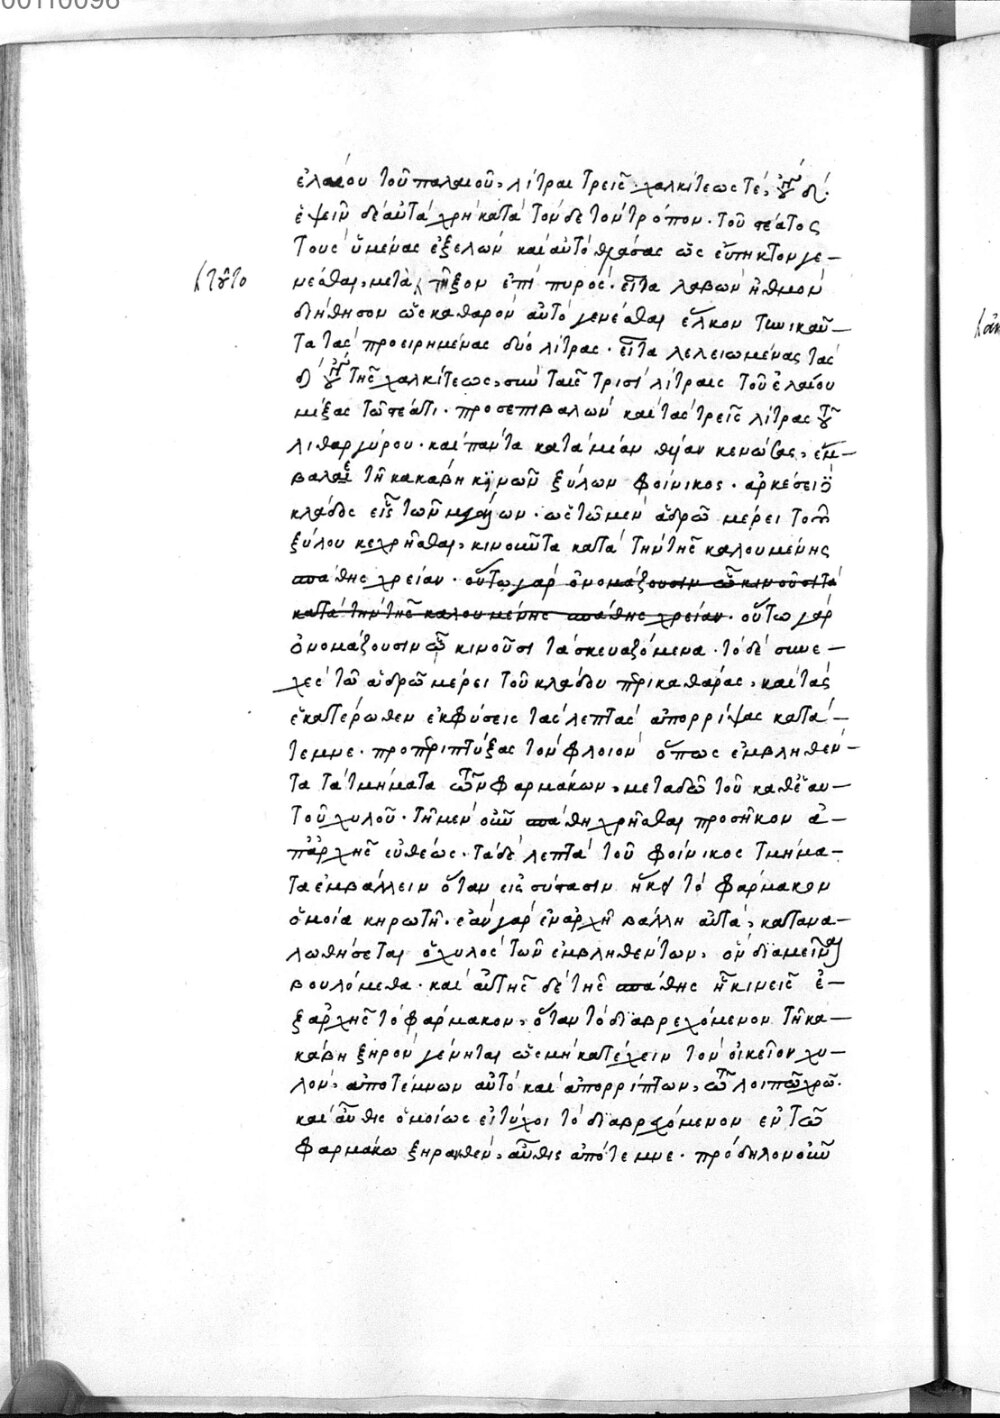 00110098
ἐλαίου τοῦ παλαιοῦ, λίτραι τρεῖς· χαλκίτεως τέ, δ΄·
ἑψεῖν δὲ αὐτὰ χρὴ κατὰ τόνδε τὸν τρόπον· τοῦ στέατος
τοὺς ὑμένας ἐξελὼν καὶ αὐτὸ θλάσας ὡς εὔτηκτον γε-
νέσθαι, μετὰ τῆξον ἐπὶ πυρός· εἶτα λαβὼν ἠθμὸν
τοῦτο
διήθησον ὡς καθαρὸν αὐτὸ γενέσθαι ἕλκον τηνικαῦ-
τα τὰς προειρημένας δύο λίτρας· εἶτα λελειωμένας τὰς
δ΄ τῆς χαλκίτεως, σὺν ταῖς τρισὶ λίτραις τοῦ ἐλαίου
μίξας τῷ στέατι· προσεπιβαλὼν καὶ τὰς τρεῖς λίτρας τοῦ
λιθαργύρου· καὶ πάντα κατὰ μίαν θυίαν κενώσας, ἐμ-
βαλεῖ τῇ κακάβῃ κινῶν ξύλων φοίνικος· ἀρκέσει ὁ
κλάδος εἷς τῶν μεγάλων· ὡς τῷ μὲν ἁδρῷ μέρει τοῦ
ξύλου κεχρῆσθαι, κινοῦντα κατὰ τὴν τῆς καλουμένης
σπάθης χρείαν· οὕτω γὰρ ὀνομάζουσιν ᾧ κινοῦσι τὰ
κατὰ τὴν τῆς καλουμένης σπάθης χρείαν· οὕτω γὰρ
ὀνομάζουσιν ᾧ κινοῦσι τὰ σκευαζόμενα· τὸ δὲ συνε-
χὲς τῷ ἁδρῷ μέρει τοῦ κλάδου περικαθάρας, καὶ τὰς
ἑκατέρωθεν ἐκφύσεις τὰς λεπτὰς ἀπορρίψας κατά-
τεμνε· προπεριπτύξας τὸν φλοιὸν ὅπως ἐμβληθέν-
τα τὰ τμήματα τῶν φαρμάκων, μεταδῷ τοῦ καθ' ἑαυ-
τοῦ χυλοῦ· τῇ μὲν οὖν σπάθῃ χρῆσθαι προσῆκον ἀ-
π' ἀρχῆς εὐθέως· τὰ δὲ λεπτὰ τοῦ φοίνικος τμήμα-
τα ἐμβάλλειν ὅταν εἰς σύστασιν ἥκῃ τὸ φάρμακον
ὁμοία κηρωτῇ· ἐὰν γὰρ ἐν ἀρχῇ βάλλῃ αὐτά, καταна-
λωθήσεται ὁ χυλὸς τῶν ἐμβληθέντων, ὃν διαμεῖναι
βουλόμεθα· καὶ αὐτῆς δὲ τῆς σπάθης ᾗ κινεῖς ἐ-
ξ ἀρχῆς τὸ φάρμακον, ὅταν τὸ διαβρεχόμενον τῇ κα-
κάβῃ ξηρὸν γένηται ὡς μὴ κατέχειν τὸν οἰκεῖον χυ-
λόν, ἀποτέμνων αὐτὸ καὶ ἀπορρίπτων, τῷ λοιπῷ χρῶ·
καὶ αὖθις ὁμοίως εἰ τύχοι τὸ διαβρεχόμενον ἐν τῷ
φαρμάκῳ ξηρανθέν, αὖθις ἀπότεμνε· πρόδηλον οὖν